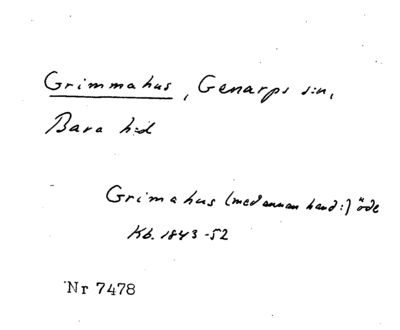 Grimmahus, Genarps s:n,
Bara h:d
Grimahus (med annan hand:) öde
Kb. 1843-52
Nr 7478